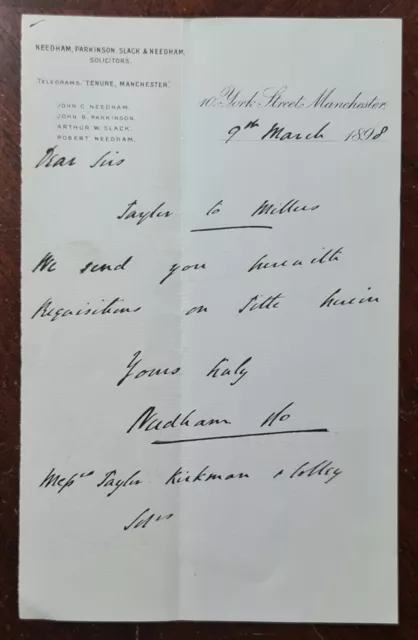 NEEDHAM, PARKINSON, SLACK & NEEDHAM,
SOLICITORS.
TELEGRAMS, "TENURE, MANCHESTER."
JOHN C. NEEDHAM.
JOHN B. PARKINSON.
ARTHUR W. SLACK.
ROBERT NEEDHAM.
10, York Street, Manchester,
9th March 1898
Dear Sirs
Tayler to Millers
We send you herewith
Requisitions on Title herein
Yours truly
Needham &Co
Messrs Tayler Kirkman & Colley
Solrs